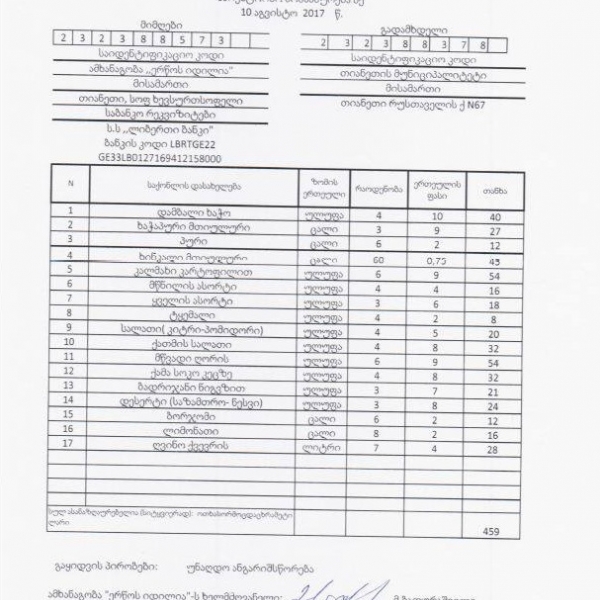 10 აგვისტო 2017 წ.
მიმღები
გადამხდელი
2 3 2 3 8 8 5 7 3
საიდენტიფიკაციო კოდი
საიდენტიფიკაციო კოდი
ამხანაგობა „ერწოს იდილია"
თიანეთის მუნიციპალიტეტი
მისამართი
მისამართი
თიანეთი, სოფ ხევსურთსოფელი
თიანეთი რუსთაველის ქ N67
საბანკო რეკვიზიტები
ს.ს ,,ლიბერთი ბანკი"
ბანკის კოდი LBRTGE22
GE33LB0127169412158000
N საქონლის დასახელება ზომის ერთეული რაოდენობა ერთეულის ფასი თანხა
1 დამბალი ხაჭო ულუფა 4 10 40
2 ხაჭაპური მთიულური ცალი 3 9 27
3 პური ცალი 6 2 12
4 ხინკალი მთიულური ცალი 60 0,75 45
5 კალმახი კარტოფილით ულუფა 6 9 54
6 მწნილის ასორტი ულუფა 4 4 16
7 ყველის ასორტი ულუფა 3 6 18
8 ტყემალი ულუფა 4 2 8
9 სალათი( კიტრი-პომიდორი) ულუფა 4 5 20
10 ქათმის სალათი ულუფა 4 8 32
11 მწვადი ღორის ულუფა 6 9 54
12 ქამა სოკო კეცზე ულუფა 4 8 32
13 ბადრიჯანი ნიგვზით ულუფა 3 7 21
14 დესერტი (საზამთრო- ნესვი) ულუფა 3 8 24
15 ბორჯომი ცალი 6 2 12
16 ლიმონათი ცალი 8 2 16
17 ღვინო ქვევრის ლიტრი 7 4 28
სულ ასანაზღაურებელია (სიტყვიერად): ოთხასორმოცდაცხრამეტი ლარი 459
გაყიდვის პირობები: უნაღდო ანგარიშსწორება
ამხანაგობა "ერწოს იდილია"-ს ხელმძღვანელი: